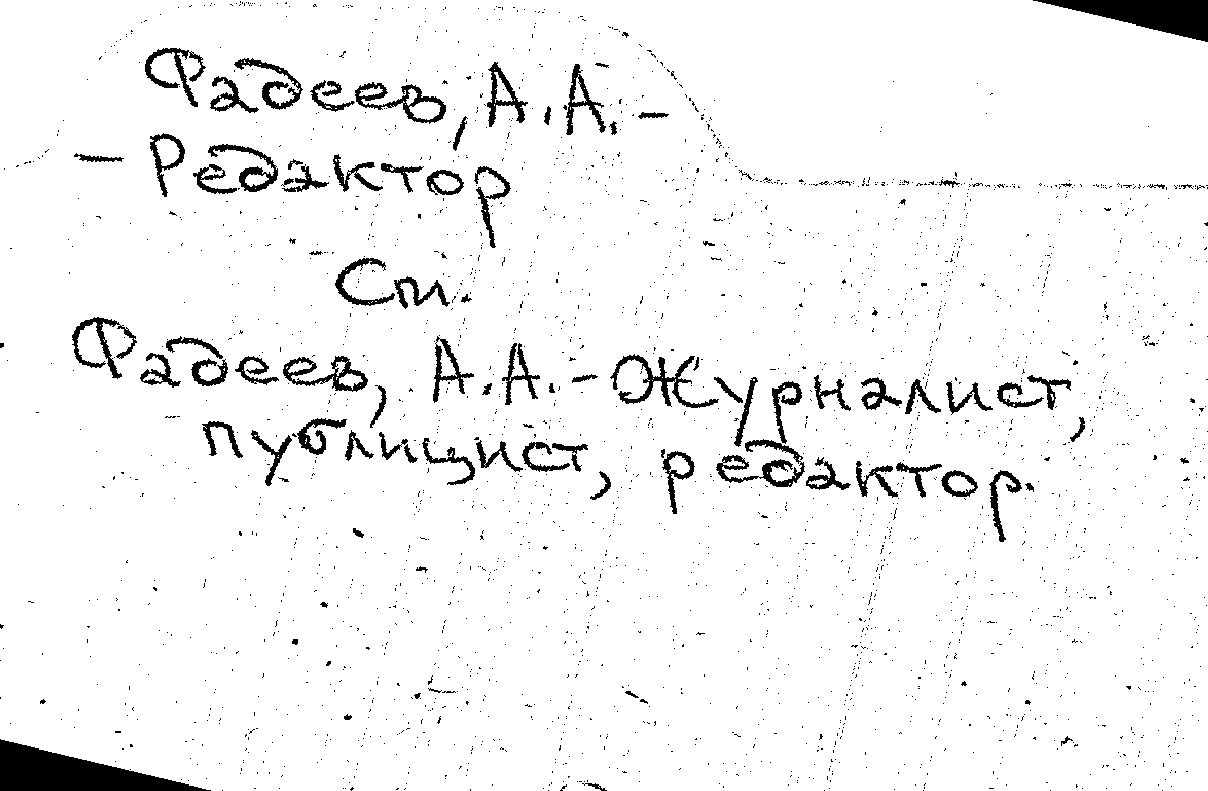 Фадеев, А.А. –
– Редактор
См.
Фадеев, А.А. – Журналист,
публицист, редактор.